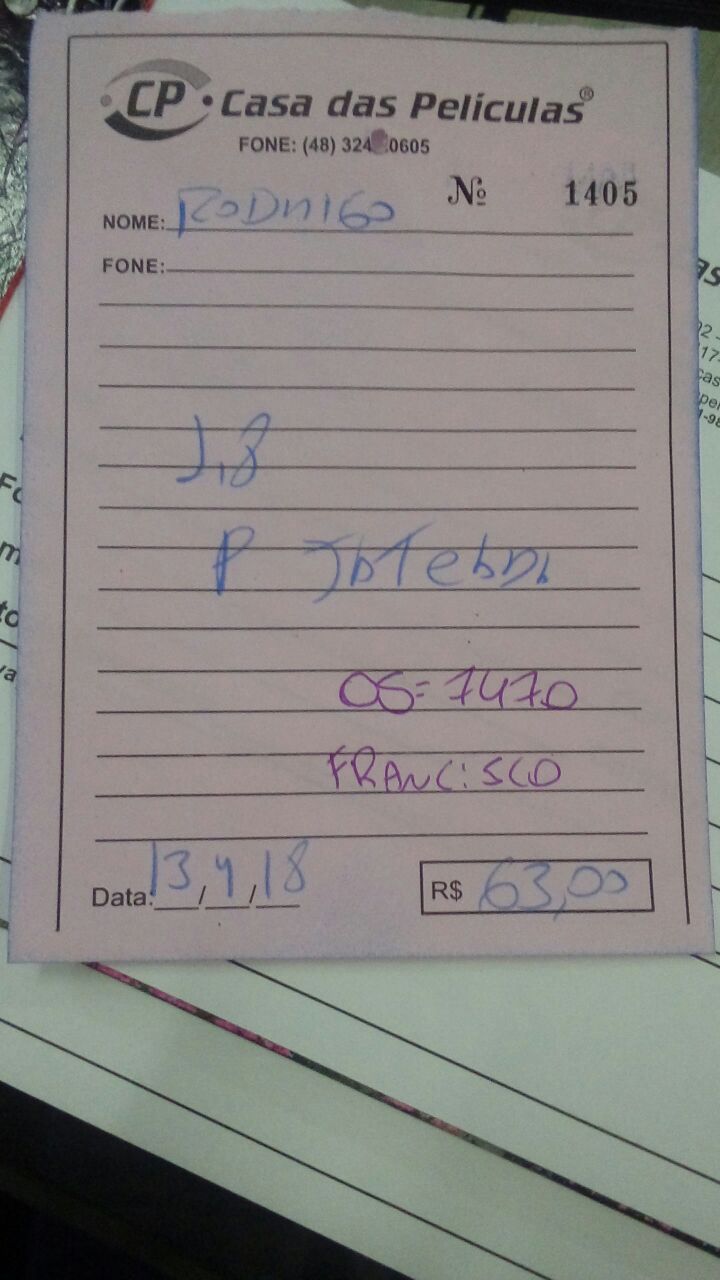 CP Casa das Películas®
FONE: (48) 324 0605
Nº 1405
NOME: RODRIGO
FONE:
1,8
P
OS= 7470
FRANCISCO
Data: 13/4/18
R$ 63,00